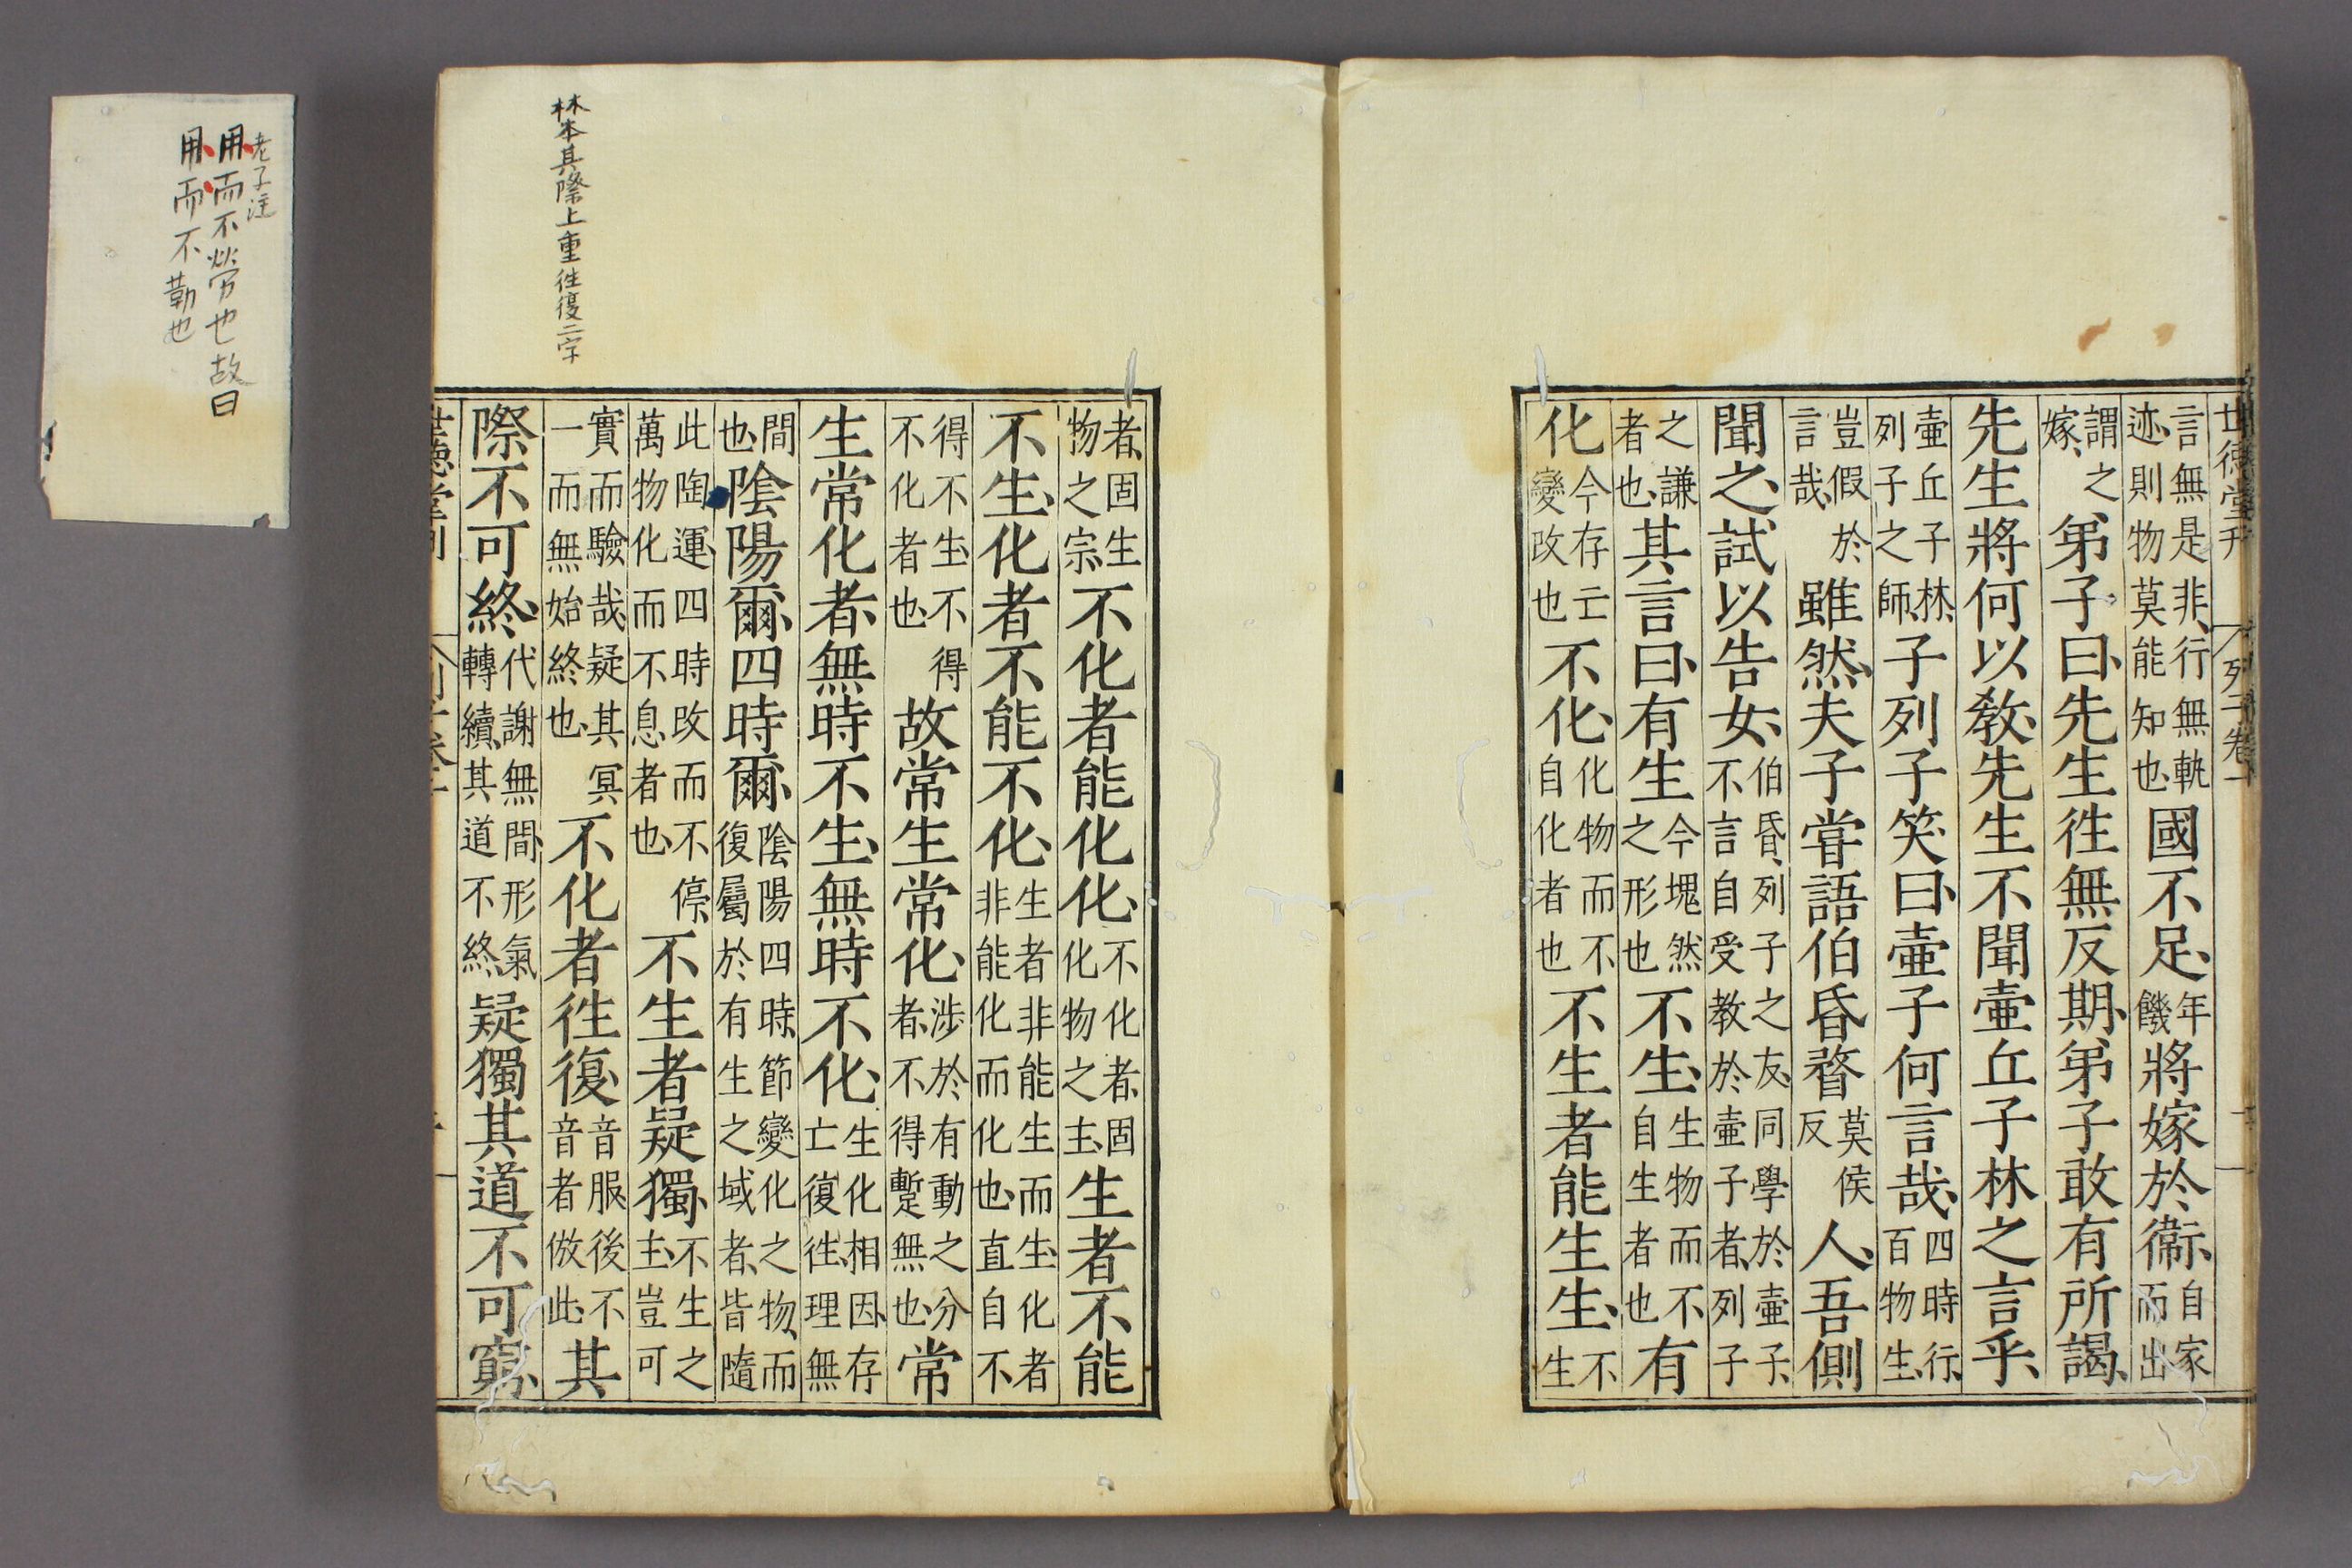 世德堂刊 列子卷一 二
言無是非、行無軌迹、則物莫能知也、國不足、年饑將嫁於衞、自家而出
謂之嫁、弟子曰、先生徃無反期、弟子敢有所謁、
先生將何以敎、先生不聞壷丘子林之言乎、
壷丘子林、列子之師、子列子笑曰、壷子何言哉、四時行、百物生、
豈假於言哉、雖然、夫子甞語伯昏瞀莫侯反人、吾側
聞之、試以告女、伯昏、列子之友、同學於壷子、不言自受教於壷子者、列子
之謙者也、其言曰、有生今塊然之形也不生、生物而不自生者也有
化今存亡變改也不化、化物而不自化者也不生者能生生、不生
者、固生物之宗、不化者能化化、不化者、固化物之主、生者不能
不生、化者不能不化、生者非能生而生、化者非能化而化也、直自不
得不生、不得不化者也、故常生常化、涉於有動之分者、不得蹔無也、常
生常化者、無時不生、無時不化、生化相因、存亡復徃、理無
間也、隂陽爾、四時爾、隂陽四時、節變化之物、而復屬於有生之域者、皆隨
此陶運、四時改而不停、萬物化而不息者也、不生者疑獨、不生之主、豈可
實而驗哉、疑其冥一而無始終也、不化者徃復、音服、後不音者倣此、其
際不可終、代謝無間、形氣轉續、其道不終、疑獨其道不可窮、
世德堂刊
林本其際上重徃復二字
老子注
用而不勞也故曰
用而不勤也